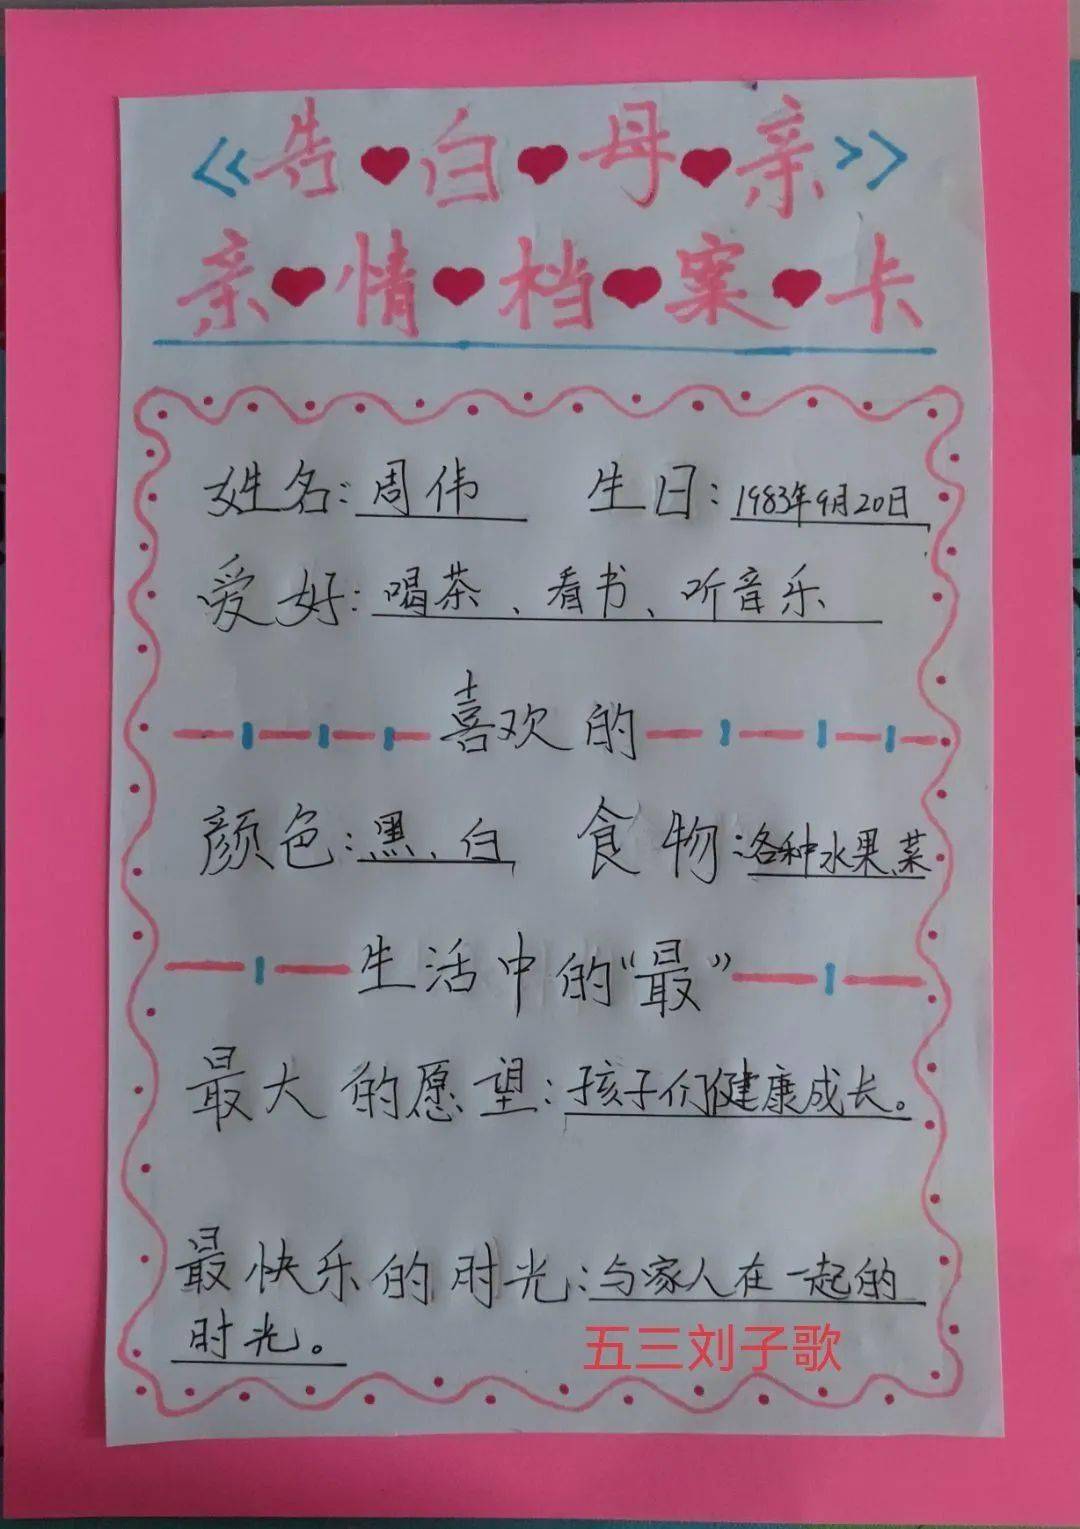 《告❤白❤母❤亲》
亲❤情❤档❤案❤卡
姓名:周伟 生日:1983年9月20日
爱好:喝茶、看书、听音乐
喜欢的
颜色:黑、白 食物:各种水果、菜
生活中的“最”
最大的愿望:孩子们健康成长。
最快乐的时光:与家人在一起的
时光。
五三刘子歌